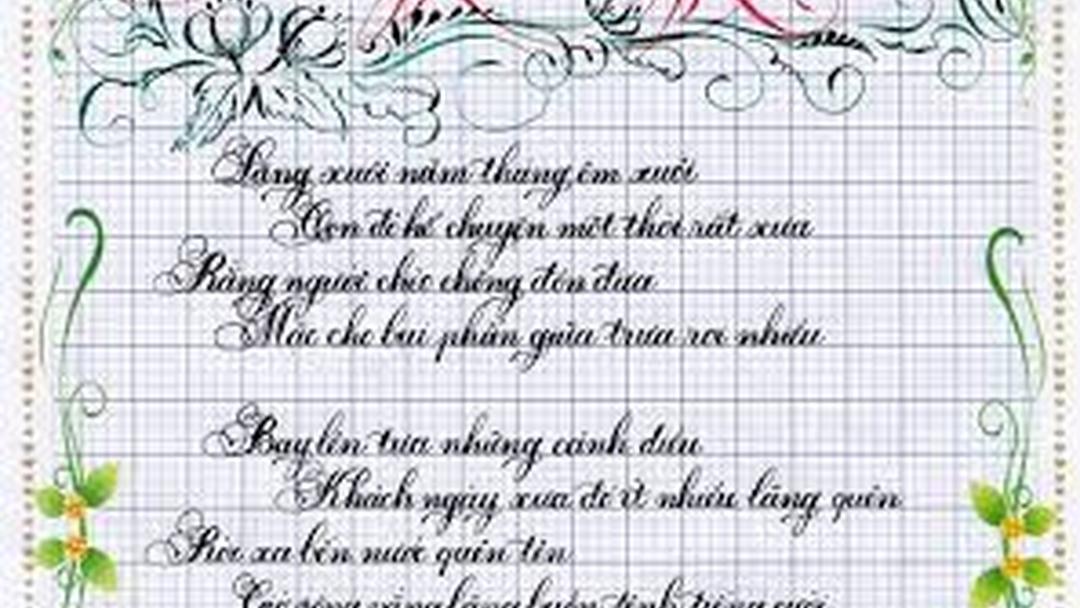 Lặng xuôi năm tháng êm xuôi
Con đò kể chuyện một thời rất xưa
Rằng người chèo chống đón đưa
Mặc cho bụi phấn giữa trưa rơi nhiều
Bay lên tựa những cánh diều
Khách ngày xưa đó ít nhiều lãng quên
Rời xa bến nước quên tên